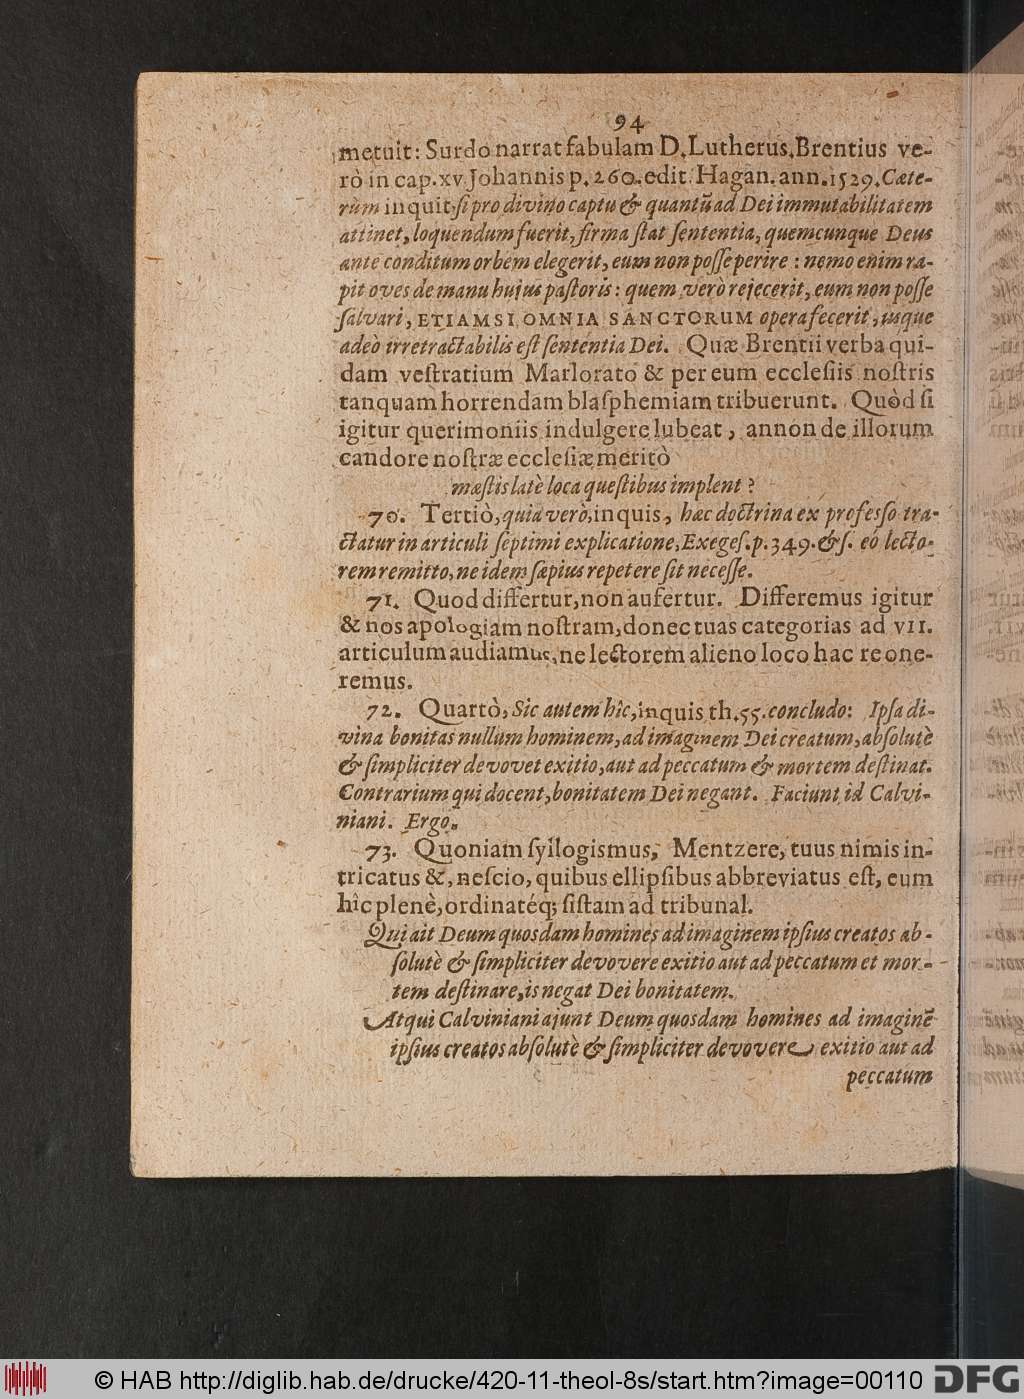 94
metuit: Surdo narrat fabulam D. Lutherus. Brentius ve-
rò in cap. xv. Johannis p. 260. edit. Hagan. ann. 1529. Cæte-
rùm inquit, ſi pro divino captu & quantũ ad Dei immutabilitatem
attinet, loquendum fuerit, firma ſtat ſententia, quemcunque Deus
ante conditum orbem elegerit, eum non poſſe perire : nemo enim ra-
pit oves de manu hujus paſtoris : quem verò rejecerit, eum non poſſe
ſalvari, ETIAMSI OMNIA SANCTORUM opera fecerit, usque
adeò irretractabilis eſt ſententia Dei. Quæ Brentii verba qui-
dam veſtratium Marlorato & per eum eccleſiis noſtris
tanquam horrendam blaſphemiam tribuerunt. Quòd ſi
igitur querimoniis indulgere lubeat, annon de illorum
candore noſtræ eccleſiæ meritò
mæſtis latè loca queſtibus implent ?
70. Tertiò, quia verò, inquis, hæc doctrina ex profeſſo tra-
ctatur in articuli ſeptimi explicatione, Exegeſ. p. 349. & ſ. eò lecto-
rem remitto, ne idem ſæpius repetere ſit neceſſe.
71. Quod differtur, non aufertur. Differemus igitur
& nos apologiam noſtram, donec tuas categorias ad VII.
articulum audiamus, ne lectorem alieno loco hac re one-
remus.
72. Quartò, Sic autem hîc, inquis th. 55. concludo: Ipſa di-
vina bonitas nullum hominem, ad imaginem Dei creatum, abſolutè
& ſimpliciter devovet exitio, aut ad peccatum & mortem deſtinat.
Contrarium qui docent, bonitatem Dei negant. Faciunt id Calvi-
niani. Ergo.
73. Quoniam ſyllogismus, Mentzere, tuus nimis in-
tricatus &, neſcio, quibus ellipſibus abbreviatus eſt, eum
hîc plenè, ordinatéq; ſiſtam ad tribunal.
Qui ait Deum quosdam homines ad imaginem ipſius creatos ab-
ſolutè & ſimpliciter devovere exitio aut ad peccatum et mor-
tem deſtinare, is negat Dei bonitatem.
Atqui Calviniani ajunt Deum quosdam homines ad imaginẽ
ipſius creatos abſolutè & ſimpliciter devovere exitio aut ad
peccatum
© HAB http://diglib.hab.de/drucke/420-11-theol-8s/start.htm?image=00110
DFG